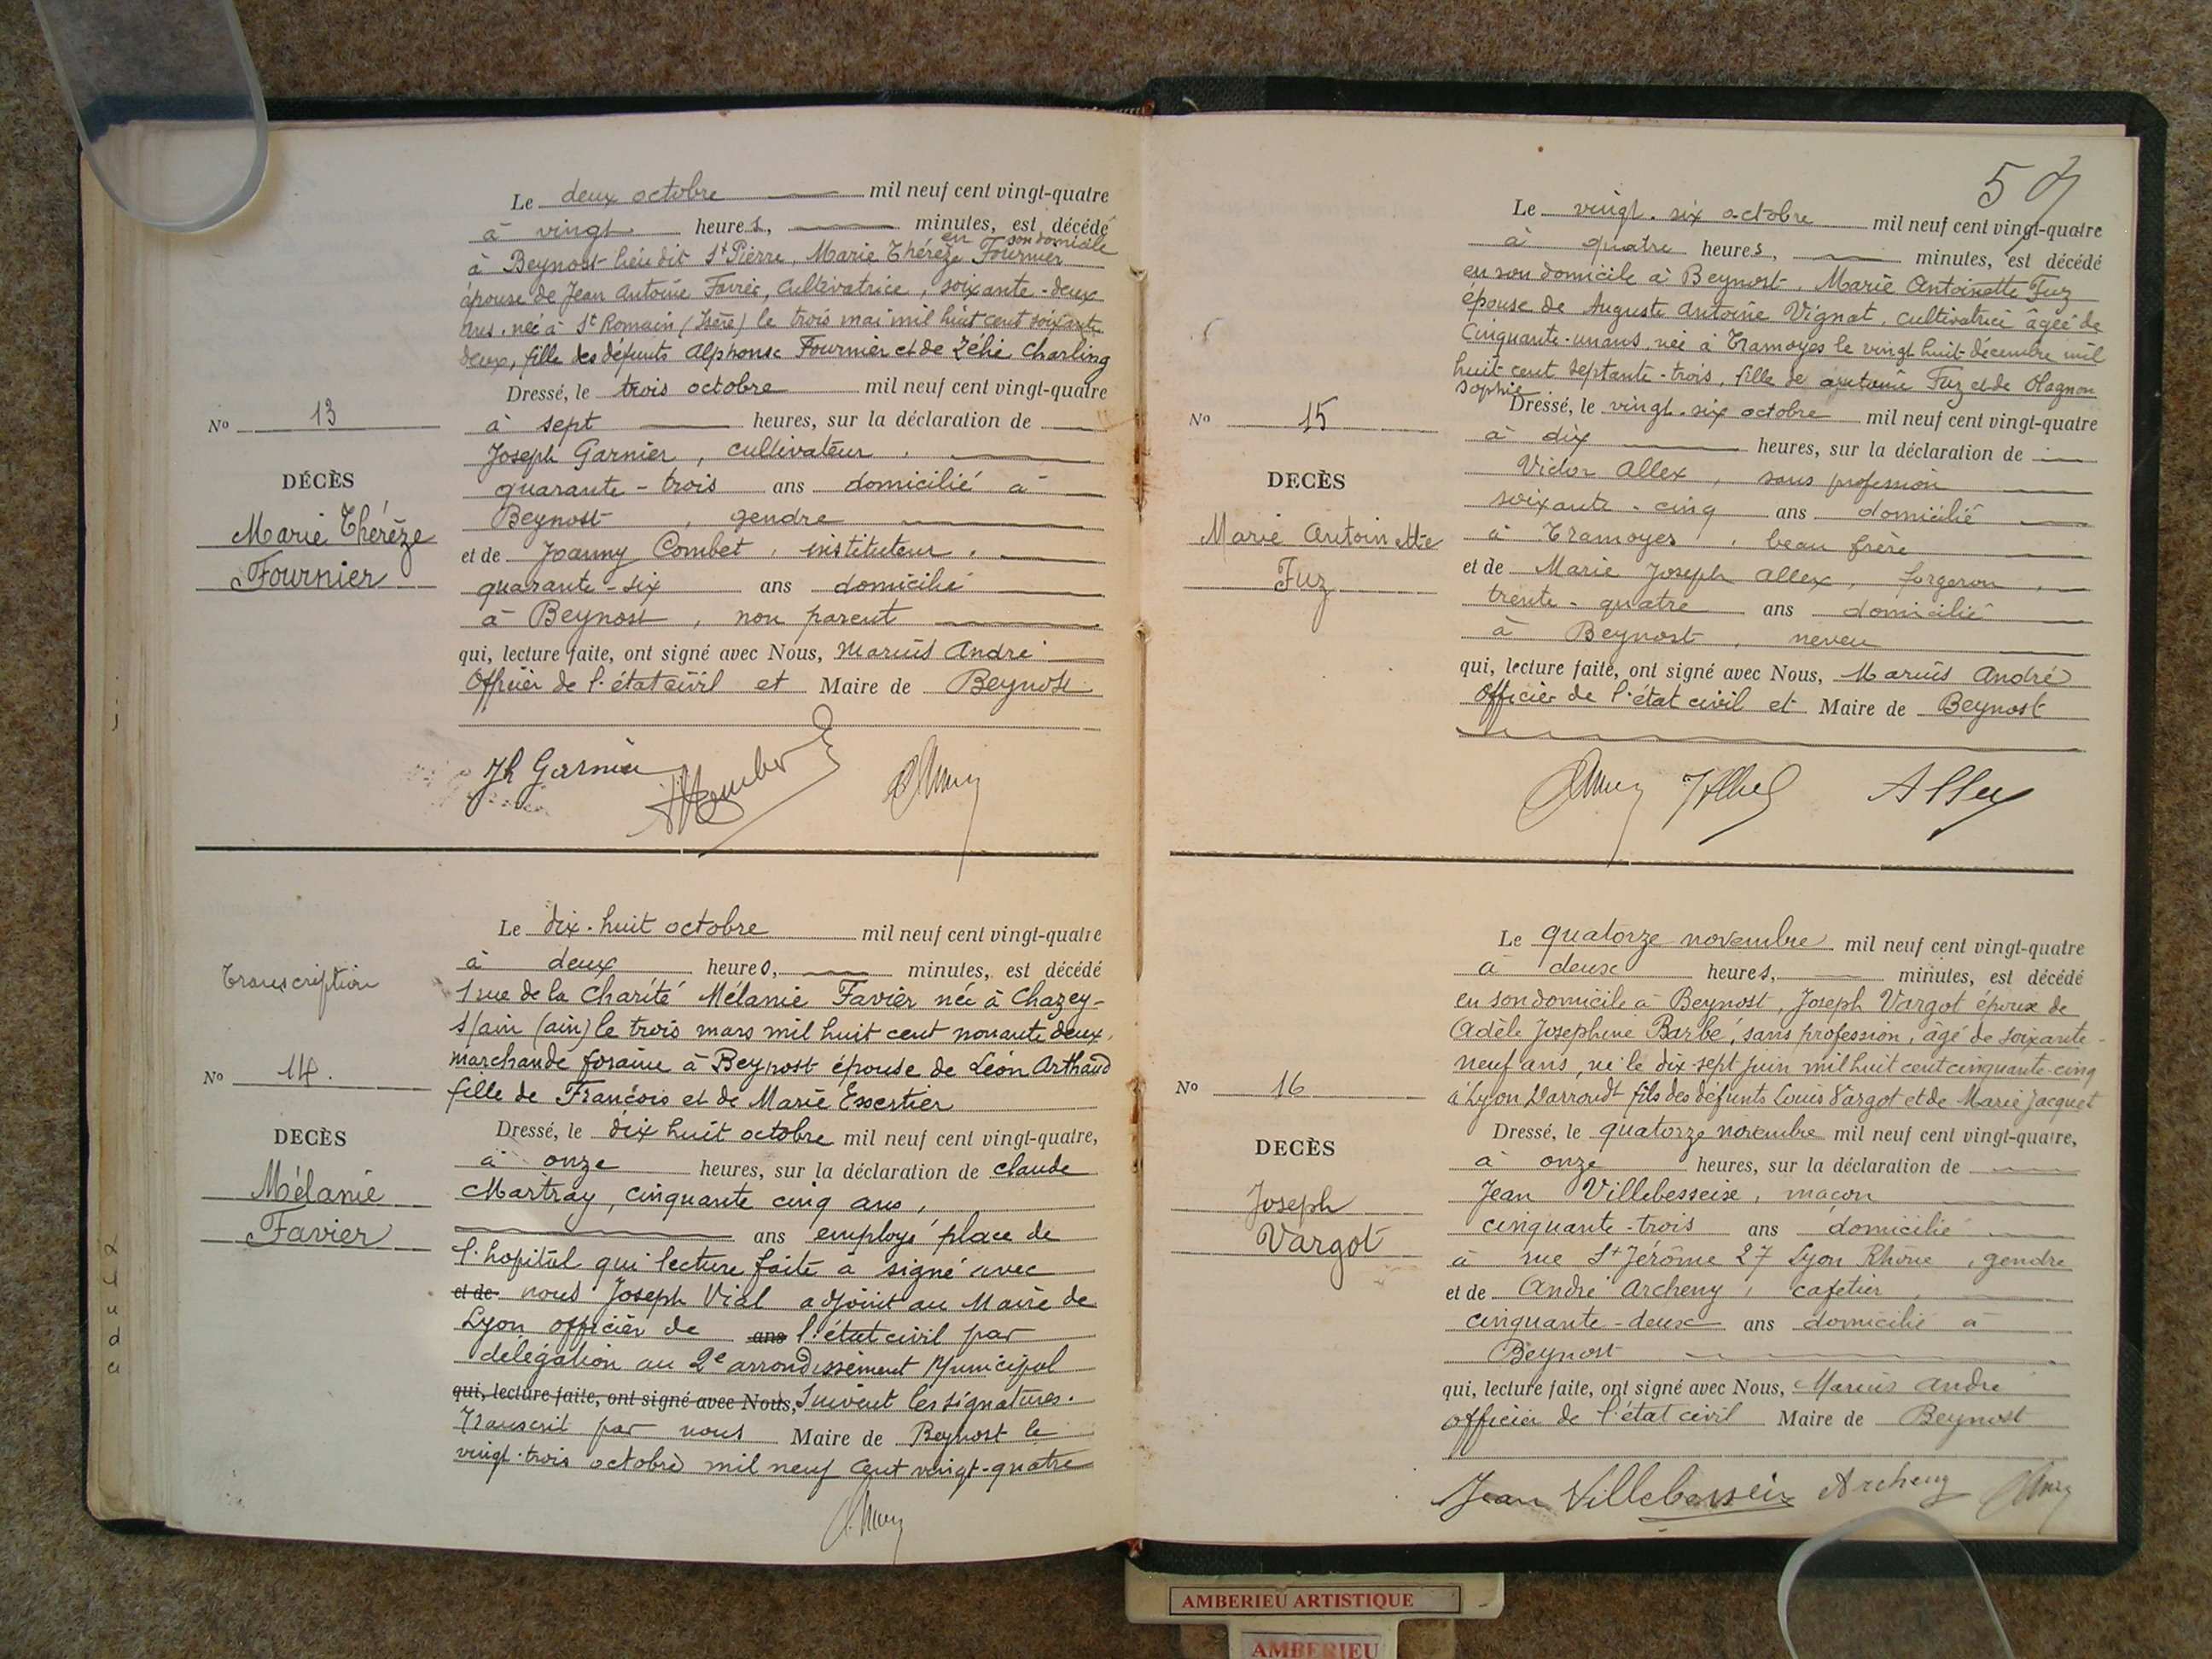 Le deux octobre mil neuf cent vingt-quatre
à vingt heures, minutes, est décédé
en son domicile
à Beynost lieu dit St Pierre, Marie Thérèze Fournier
épouse de Jean Antoine Favre, cultivatrice, soixante-deux
ans, née à St Romain (Isère) le trois mai mil huit cent soixante
deux, fille des défunts Alphonse Fournier et de Zélie Charling
Dressé, le trois octobre mil neuf cent vingt-quatre
à sept heures, sur la déclaration de
Joseph Garnier, cultivateur,
quarante-trois ans domicilié à
Beynost, gendre
et de Joanny Combet, instituteur,
quarante-six ans domicilié
à Beynost, non parent
qui, lecture faite, ont signé avec Nous, Marius André
Officier de l'état civil et Maire de Beynost
No 13
DÉCÈS
Marie Thérèze
Fournier
Jh Garnier
Le dix-huit octobre mil neuf cent vingt-quatre
à deux heures, minutes, est décédé
1 rue de la Charité Mélanie Favier née à Chazey-
s/ain (ain) le trois mars mil huit cent nonante deux,
marchande foraine à Beynost épouse de Léon Arthaud
fille de François et de Marie Essertier
Dressé, le dix huit octobre mil neuf cent vingt-quatre,
à onze heures, sur la déclaration de claude
Martray, cinquante cinq ans,
ans employé place de
l'hopital qui lecture faite a signé avec
et de nous Joseph Vial adjoint au Maire de
Lyon officier de ans l'état civil par
délégation au 2e arrondissement Municipal
qui, lecture faite, ont signé avec Nous, Suivent les signatures.
Transcrit par nous Maire de Beynost le
vingt-trois octobre mil neuf cent vingt-quatre
Transcription
No 14.
DECÈS
Mélanie
Favier
5
Le vingt-six octobre mil neuf cent vingt-quatre
à quatre heures, minutes, est décédé
en son domicile à Beynost, Marie Antoinette Fuz
épouse de Auguste Antoine Vignat, cultivatrice âgée de
Cinquante-un ans, née à Tramoyes le vingt huit décembre mil
huit cent septante-trois, fille de antoine Fuz et de Olagnon
Sophie
Dressé, le vingt-six octobre mil neuf cent vingt-quatre
à dix heures, sur la déclaration de
Victor Allex, sans profession
soixante-cinq ans domicilié
à Tramoyes, beau frère
et de Marie Joseph Allex, forgeron,
trente-quatre ans domicilié
à Beynost, neveu
qui, lecture faite, ont signé avec Nous, Marius André
Officier de l'état civil et Maire de Beynost
No 15
DECÈS
Marie Antoinette
Fuz
Le quatorze novembre mil neuf cent vingt-quatre
à deux heures, minutes, est décédé
en son domicile à Beynost, Joseph Vargot époux de
Adèle Josephine Barbe, sans profession, âgé de soixante-
neuf ans, né le dix-sept juin mil huit cent cinquante-cinq
à Lyon fils des défunts Louis Vargot et de Marie Jacquet
Dressé, le quatorze novembre mil neuf cent vingt-quatre,
à onze heures, sur la déclaration de
Jean Villebesseise, maçon
cinquante-trois ans domicilié
à rue St Jérôme 27 Lyon Rhône, gendre
et de André Archeny, cafetier,
cinquante-deux ans domicilié à
Beynost
qui, lecture faite, ont signé avec Nous, Marius André
officier de l'état civil Maire de Beynost
No 16
DECÈS
Joseph
Vargot
Jean Villebesseix Archeny
AMBERIEU ARTISTIQUE
AMBERIEU